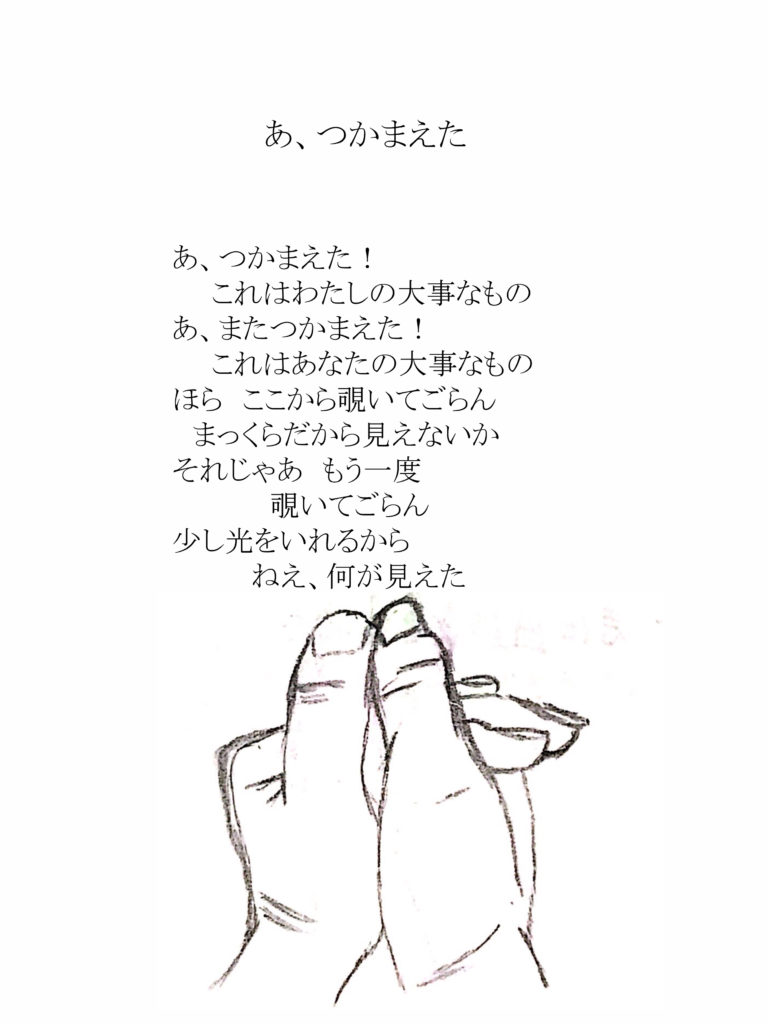 あ、つかまえた
あ、つかまえた！
これはわたしの大事なもの
あ、またつかまえた！
これはあなたの大事なもの
ほら　ここから覗いてごらん
まっくらだから見えないか
それじゃあ　もう一度
覗いてごらん
少し光をいれるから
ねえ、何が見えた